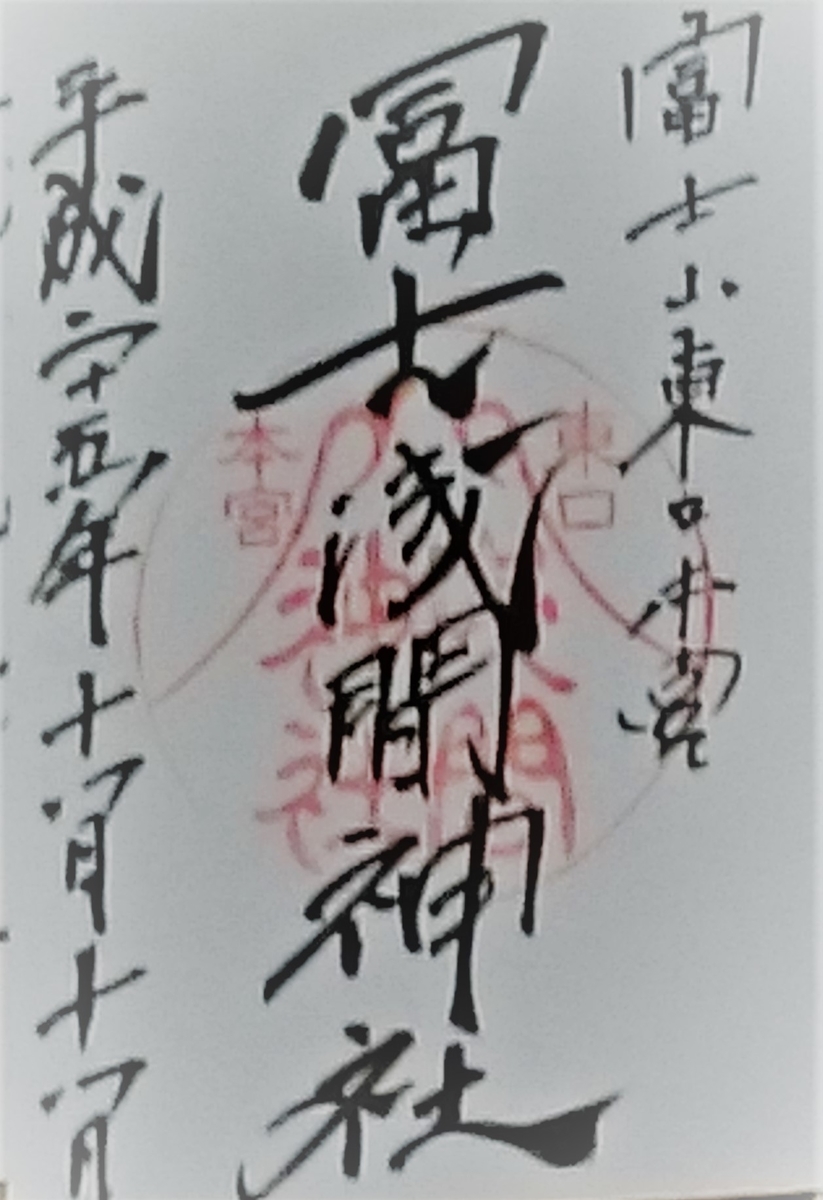 富士山東口本宮
冨士浅間神社
平成二十五年十一月十一日
東口
本宮